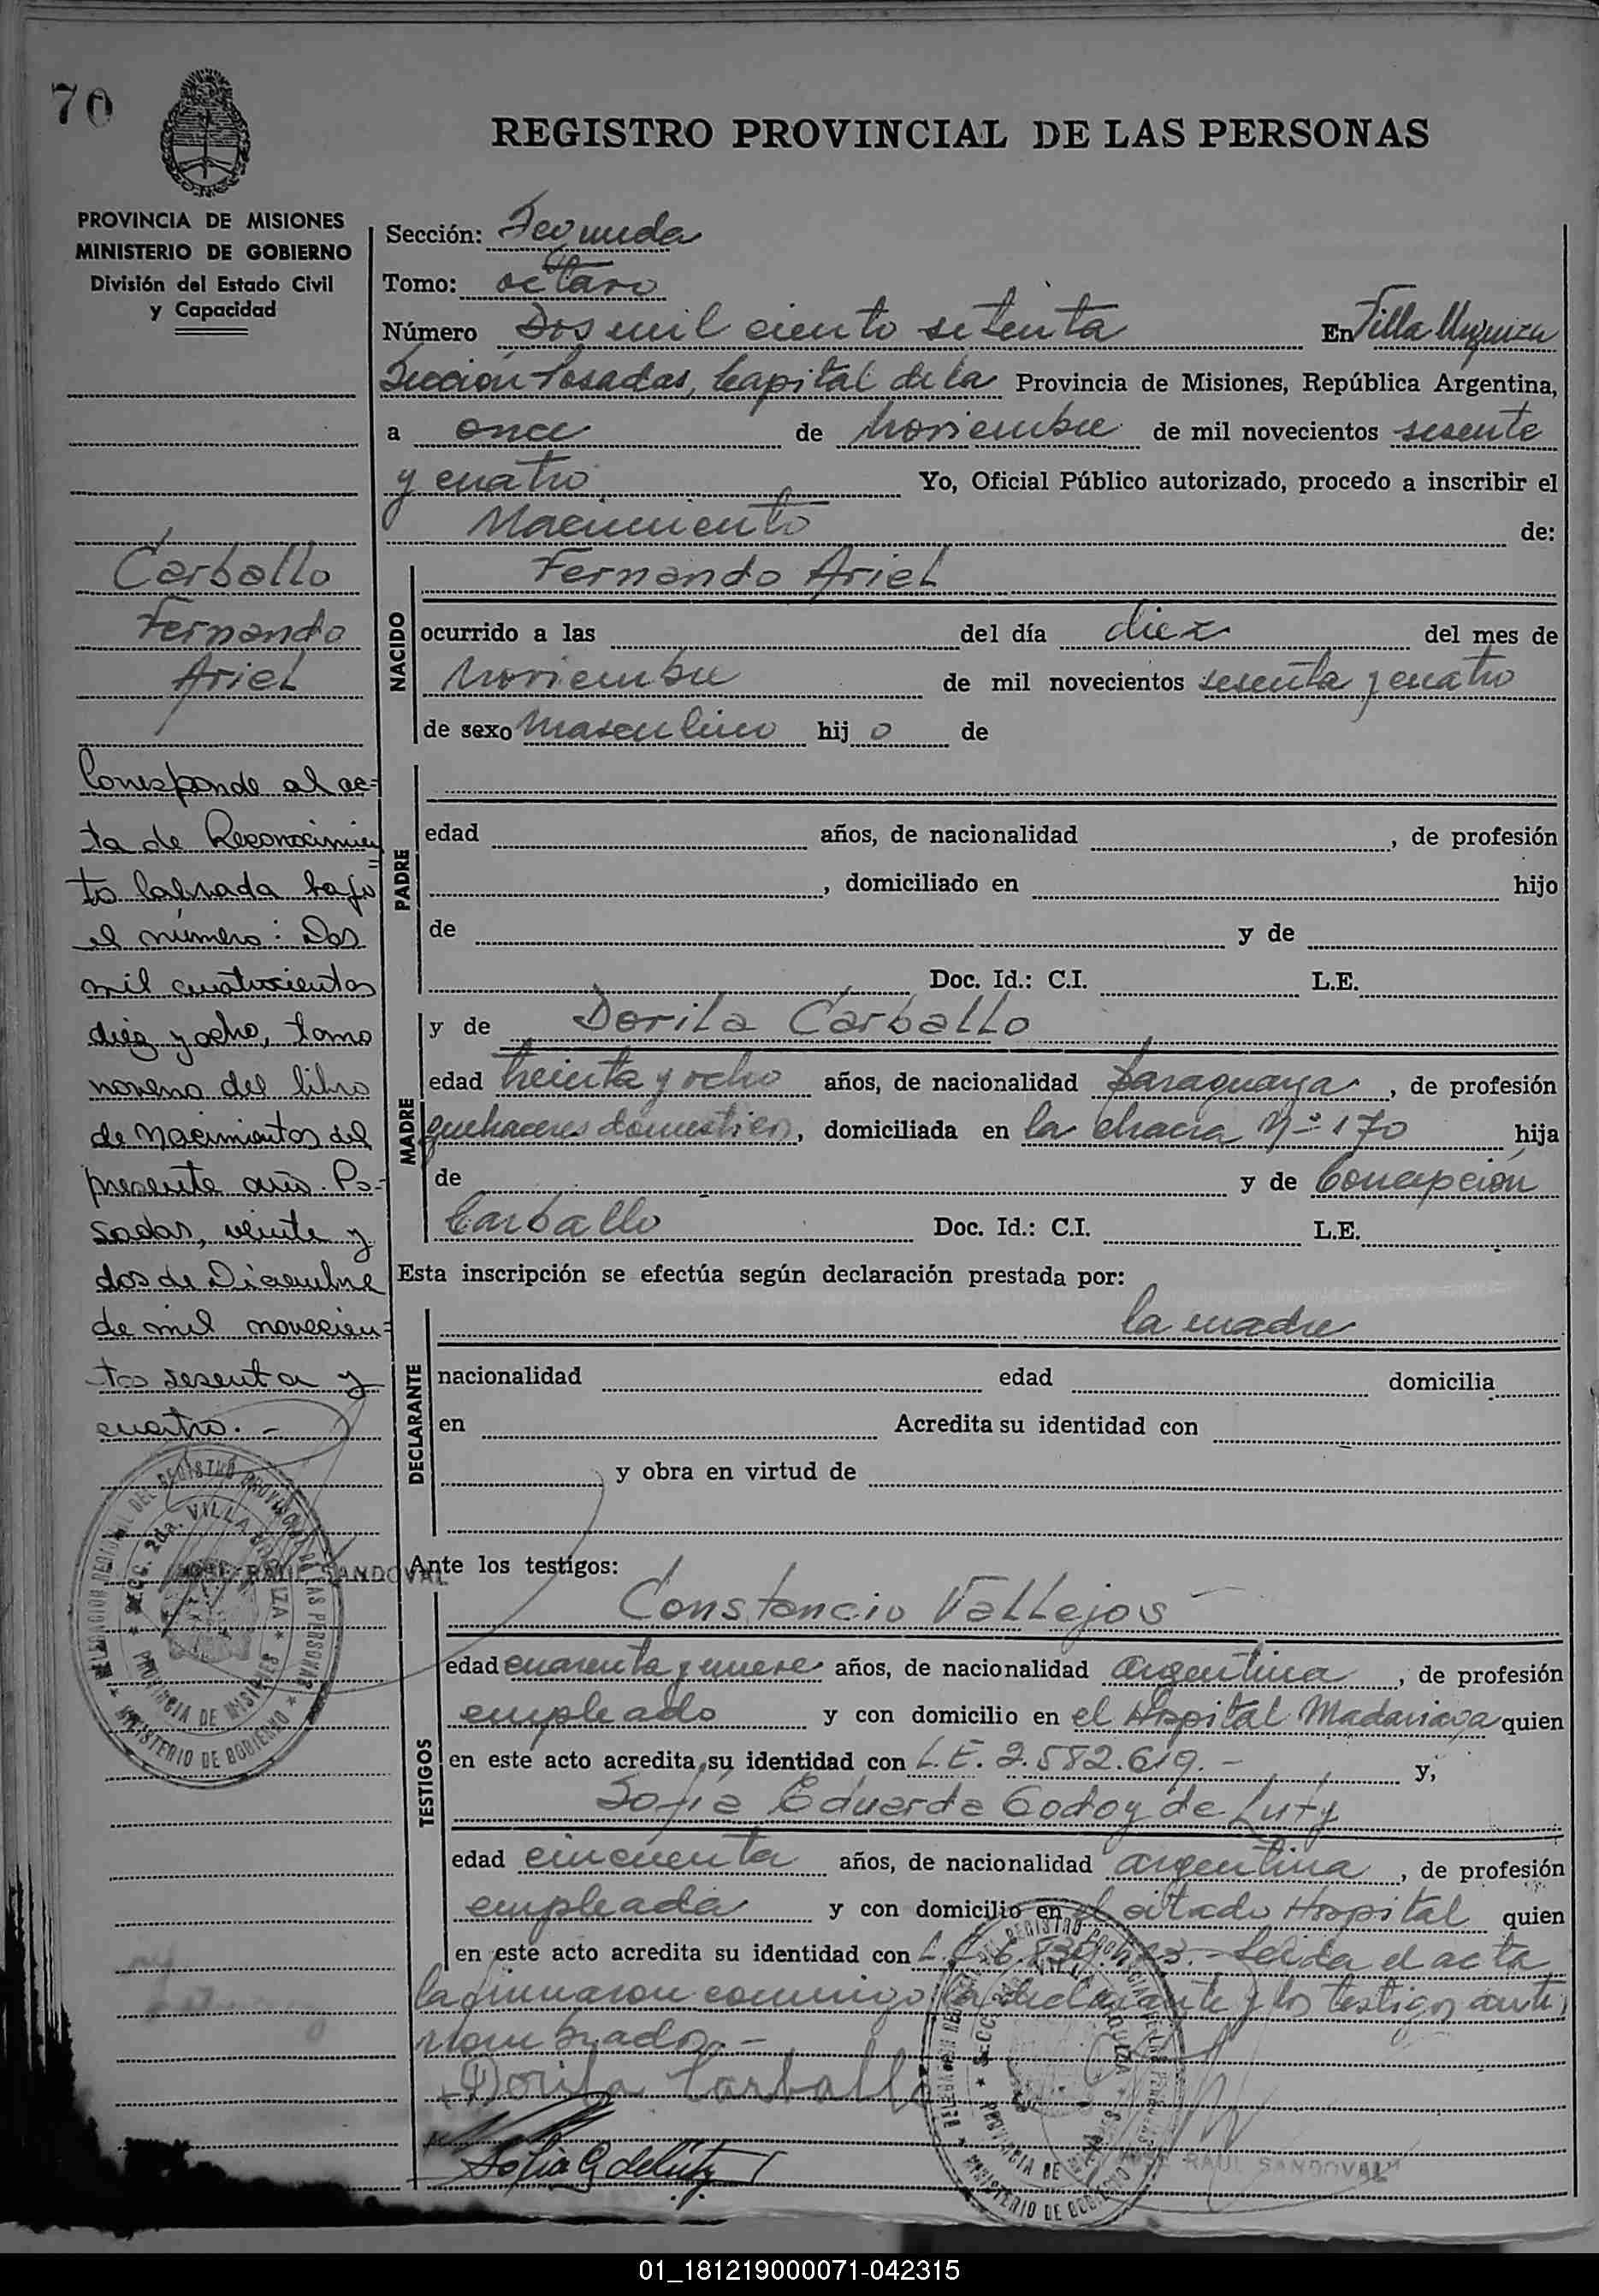 70
REGISTRO PROVINCIAL DE LAS PERSONAS
PROVINCIA DE MISIONES
MINISTERIO DE GOBIERNO
División del Estado Civil
y Capacidad
Carballo
Fernando
Ariel
Corresponde al ac-
ta de Reconocimien
to labrada bajo
el número: Dos
mil cuatrocientos
diez y ocho, tomo
noveno del libro
de Nacimientos del
presente año. Po-
sadas, veinte y
dos de Diciembre
de mil novecien-
tos sesenta y
cuatro. -
DELEGACION REGIONAL DEL REGISTRO PROVINCIAL DE LAS PERSONAS
SECC. 2da. VILLA URQUIZA
PROVINCIA DE MISIONES
MINISTERIO DE GOBIERNO
RAUL SANDOVAL
Sección: Segunda
Tomo: octavo
Número Dos mil ciento setenta En Villa Urquiza
Sección Posadas, Capital de la Provincia de Misiones, República Argentina,
a once de Noviembre de mil novecientos sesenta
y cuatro Yo, Oficial Público autorizado, procedo a inscribir el
Nacimiento de:
NACIDO
Fernando Ariel
ocurrido a las del día diez del mes de
Noviembre de mil novecientos sesenta y cuatro
de sexo Masculino hij o de
PADRE
edad años, de nacionalidad , de profesión
, domiciliado en hijo
de y de
Doc. Id.: C.I. L.E.
MADRE
y de Dorila Carballo
edad treinta y ocho años, de nacionalidad paraguaya , de profesión
quehaceres domesticos, domiciliada en la chacra Nº 170 hija
de y de Concepción
Carballo Doc. Id.: C.I. L.E.
Esta inscripción se efectúa según declaración prestada por:
DECLARANTE
la madre
nacionalidad edad domicilia
en Acredita su identidad con
y obra en virtud de
Ante los testigos:
TESTIGOS
Constancio Vallejos
edad cuarenta y nueve años, de nacionalidad argentina , de profesión
empleado y con domicilio en el Hospital Madariaga quien
en este acto acredita su identidad con L.E. 2.582.619.- y,
Sofia Eduarda Godoy de Luty
edad cincuenta años, de nacionalidad argentina , de profesión
empleada y con domicilio en el citado Hospital quien
en este acto acredita su identidad con Leida el acta
la firmaron conmigo la declarante y los testigos ante
nombrados.-
Dorila Carballo
Sofia G de Luty
DELEGACION REGIONAL DEL REGISTRO PROVINCIAL DE LAS PERSONAS
SECC. 2da. VILLA URQUIZA
PROVINCIA DE MISIONES
MINISTERIO DE GOBIERNO
JOSE RAUL SANDOVAL
01_181219000071-042315